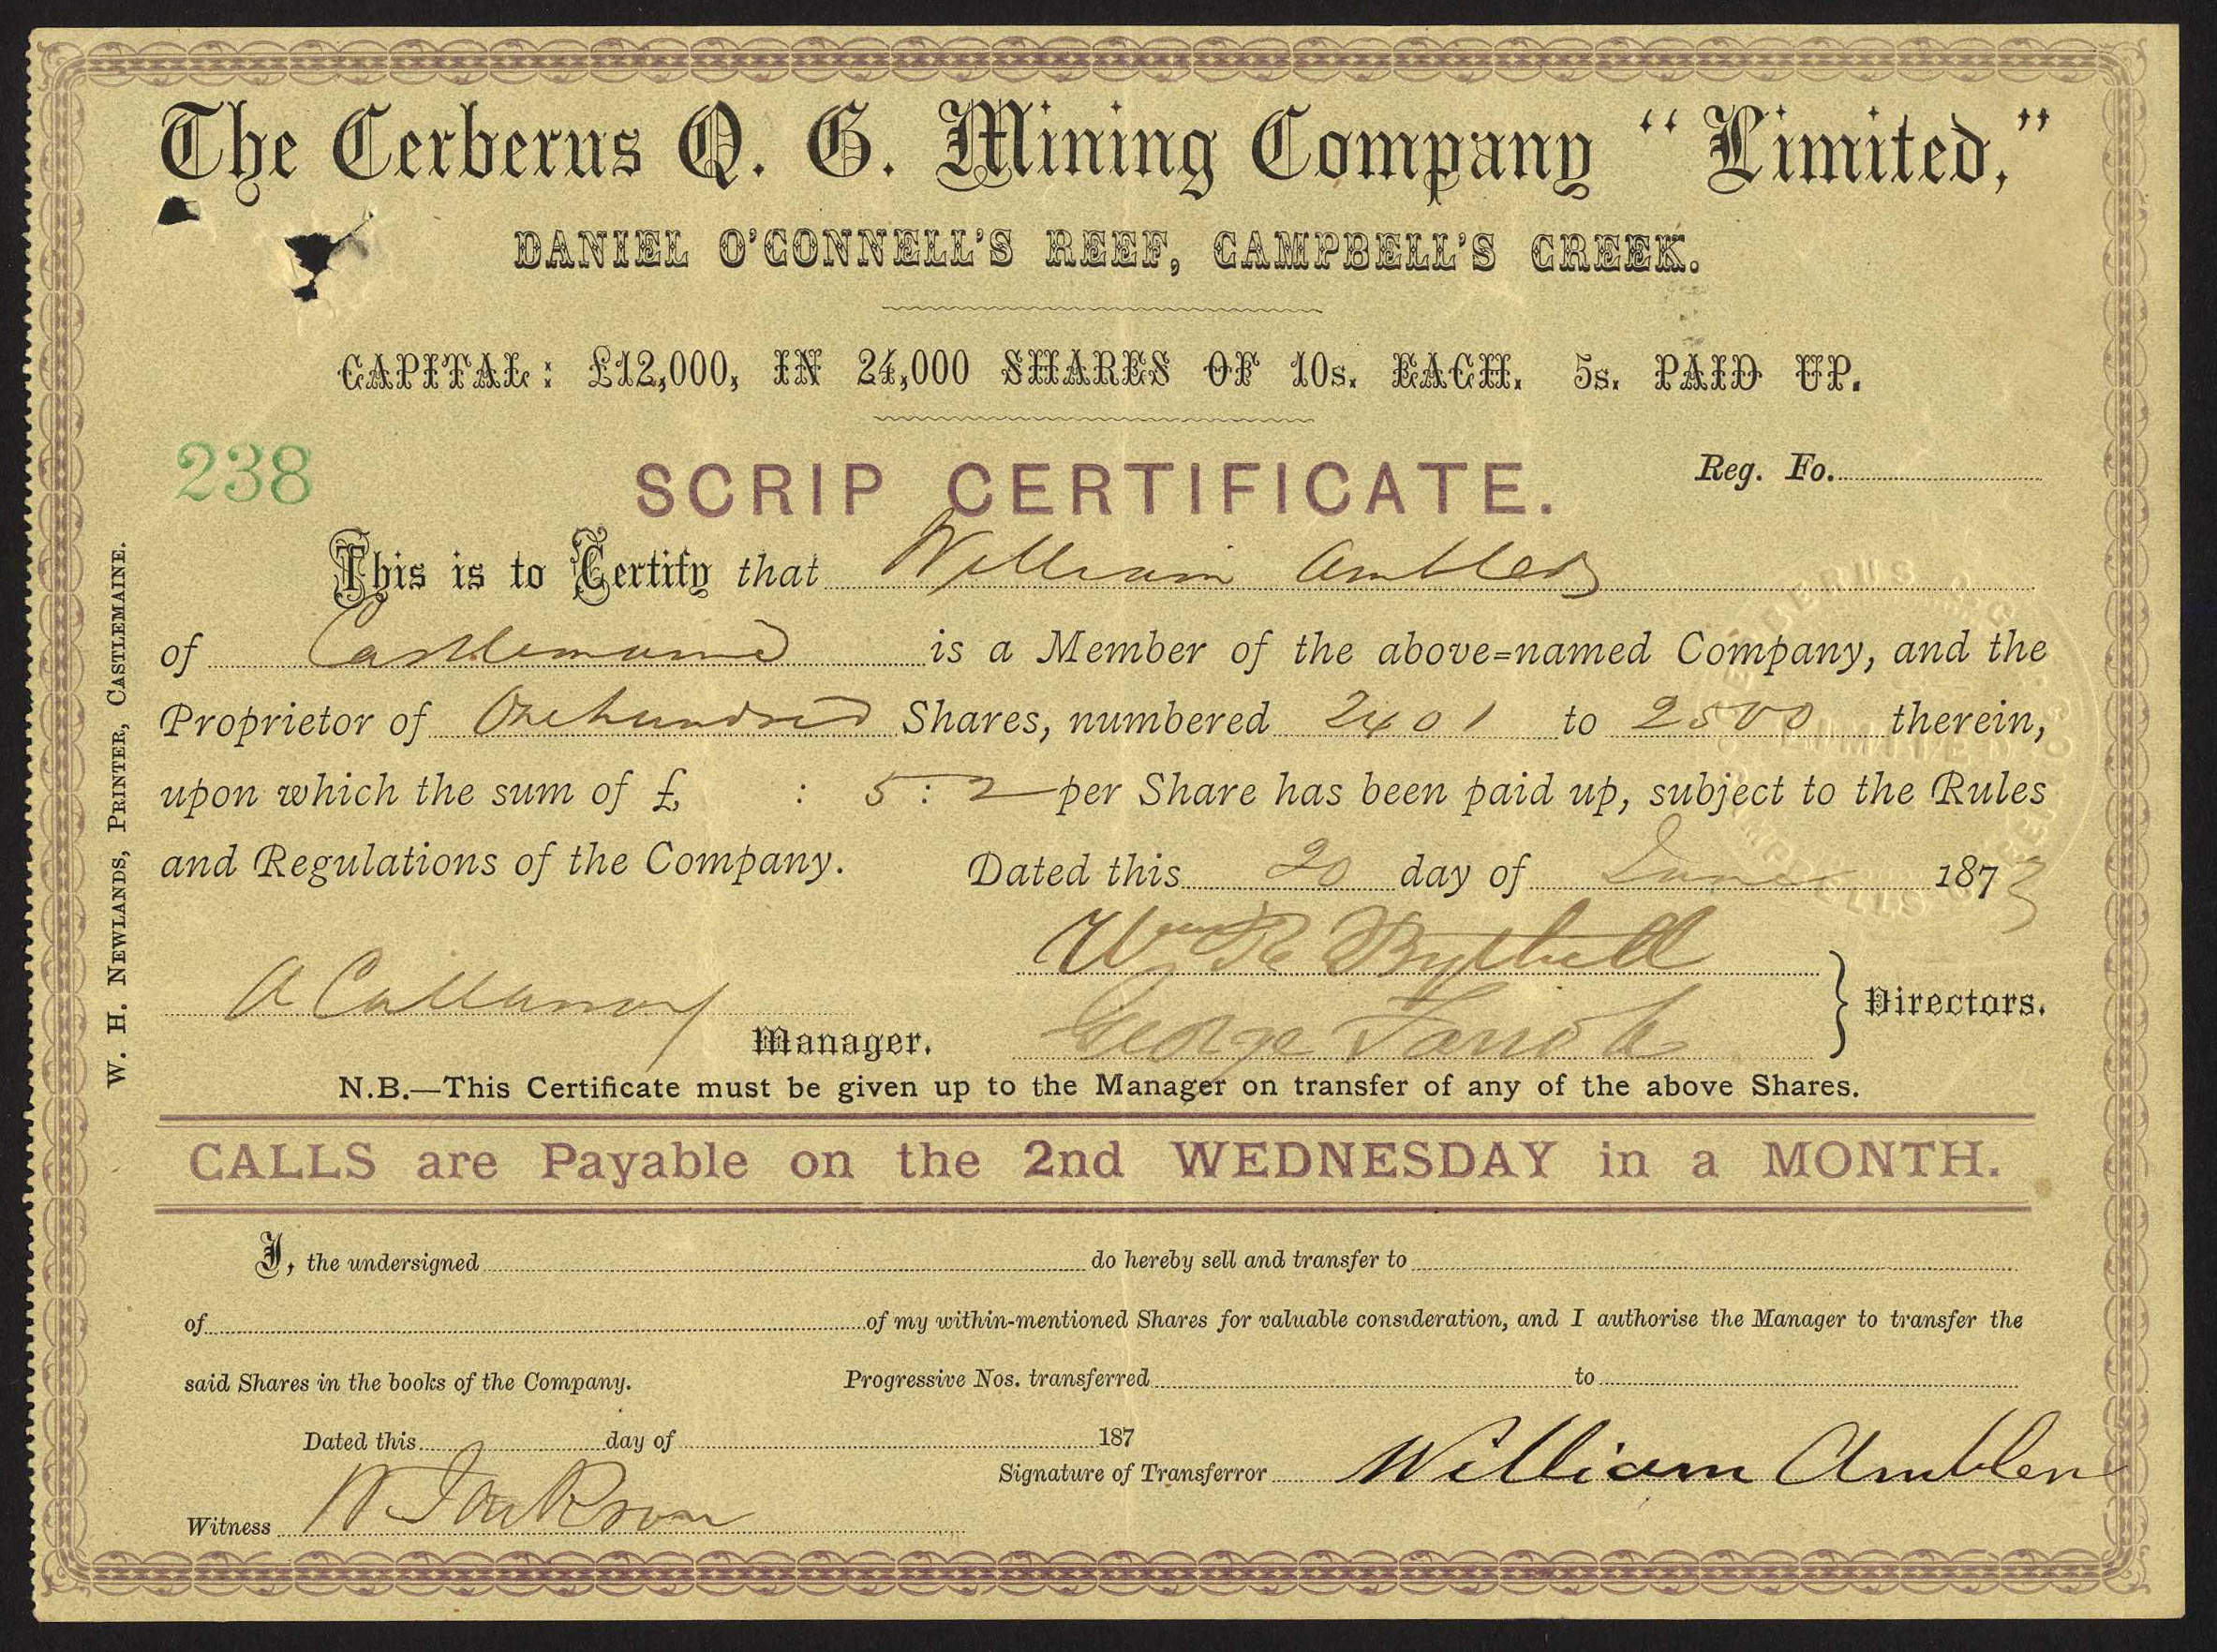 The Cerberus Q. G. Mining Company "Limited,"
DANIEL O'CONNELL'S REEF, CAMPBELL'S CREEK.
CAPITAL: £12,000, IN 24,000 SHARES OF 10s. EACH. 5s. PAID UP.
238
SCRIP CERTIFICATE.
Reg. Fo.
This is to Certify that William Ambler
of Castlemaine is a Member of the above-named Company, and the
Proprietor of One hundred Shares, numbered 2401 to 2500 therein,
upon which the sum of £ : 5 : 2 per Share has been paid up, subject to the Rules
and Regulations of the Company. Dated this 20 day of June 1873
Wm R Bythell
A Callaway Manager.
George Directors.
N.B.—This Certificate must be given up to the Manager on transfer of any of the above Shares.
CALLS are Payable on the 2nd WEDNESDAY in a MONTH.
I, the undersigned do hereby sell and transfer to
of of my within-mentioned Shares for valuable consideration, and I authorise the Manager to transfer the
said Shares in the books of the Company. Progressive Nos. transferred to
Dated this day of 187
Signature of Transferror William Ambler
Witness W. Jackson
W. H. NEWLANDS, PRINTER, CASTLEMAINE.